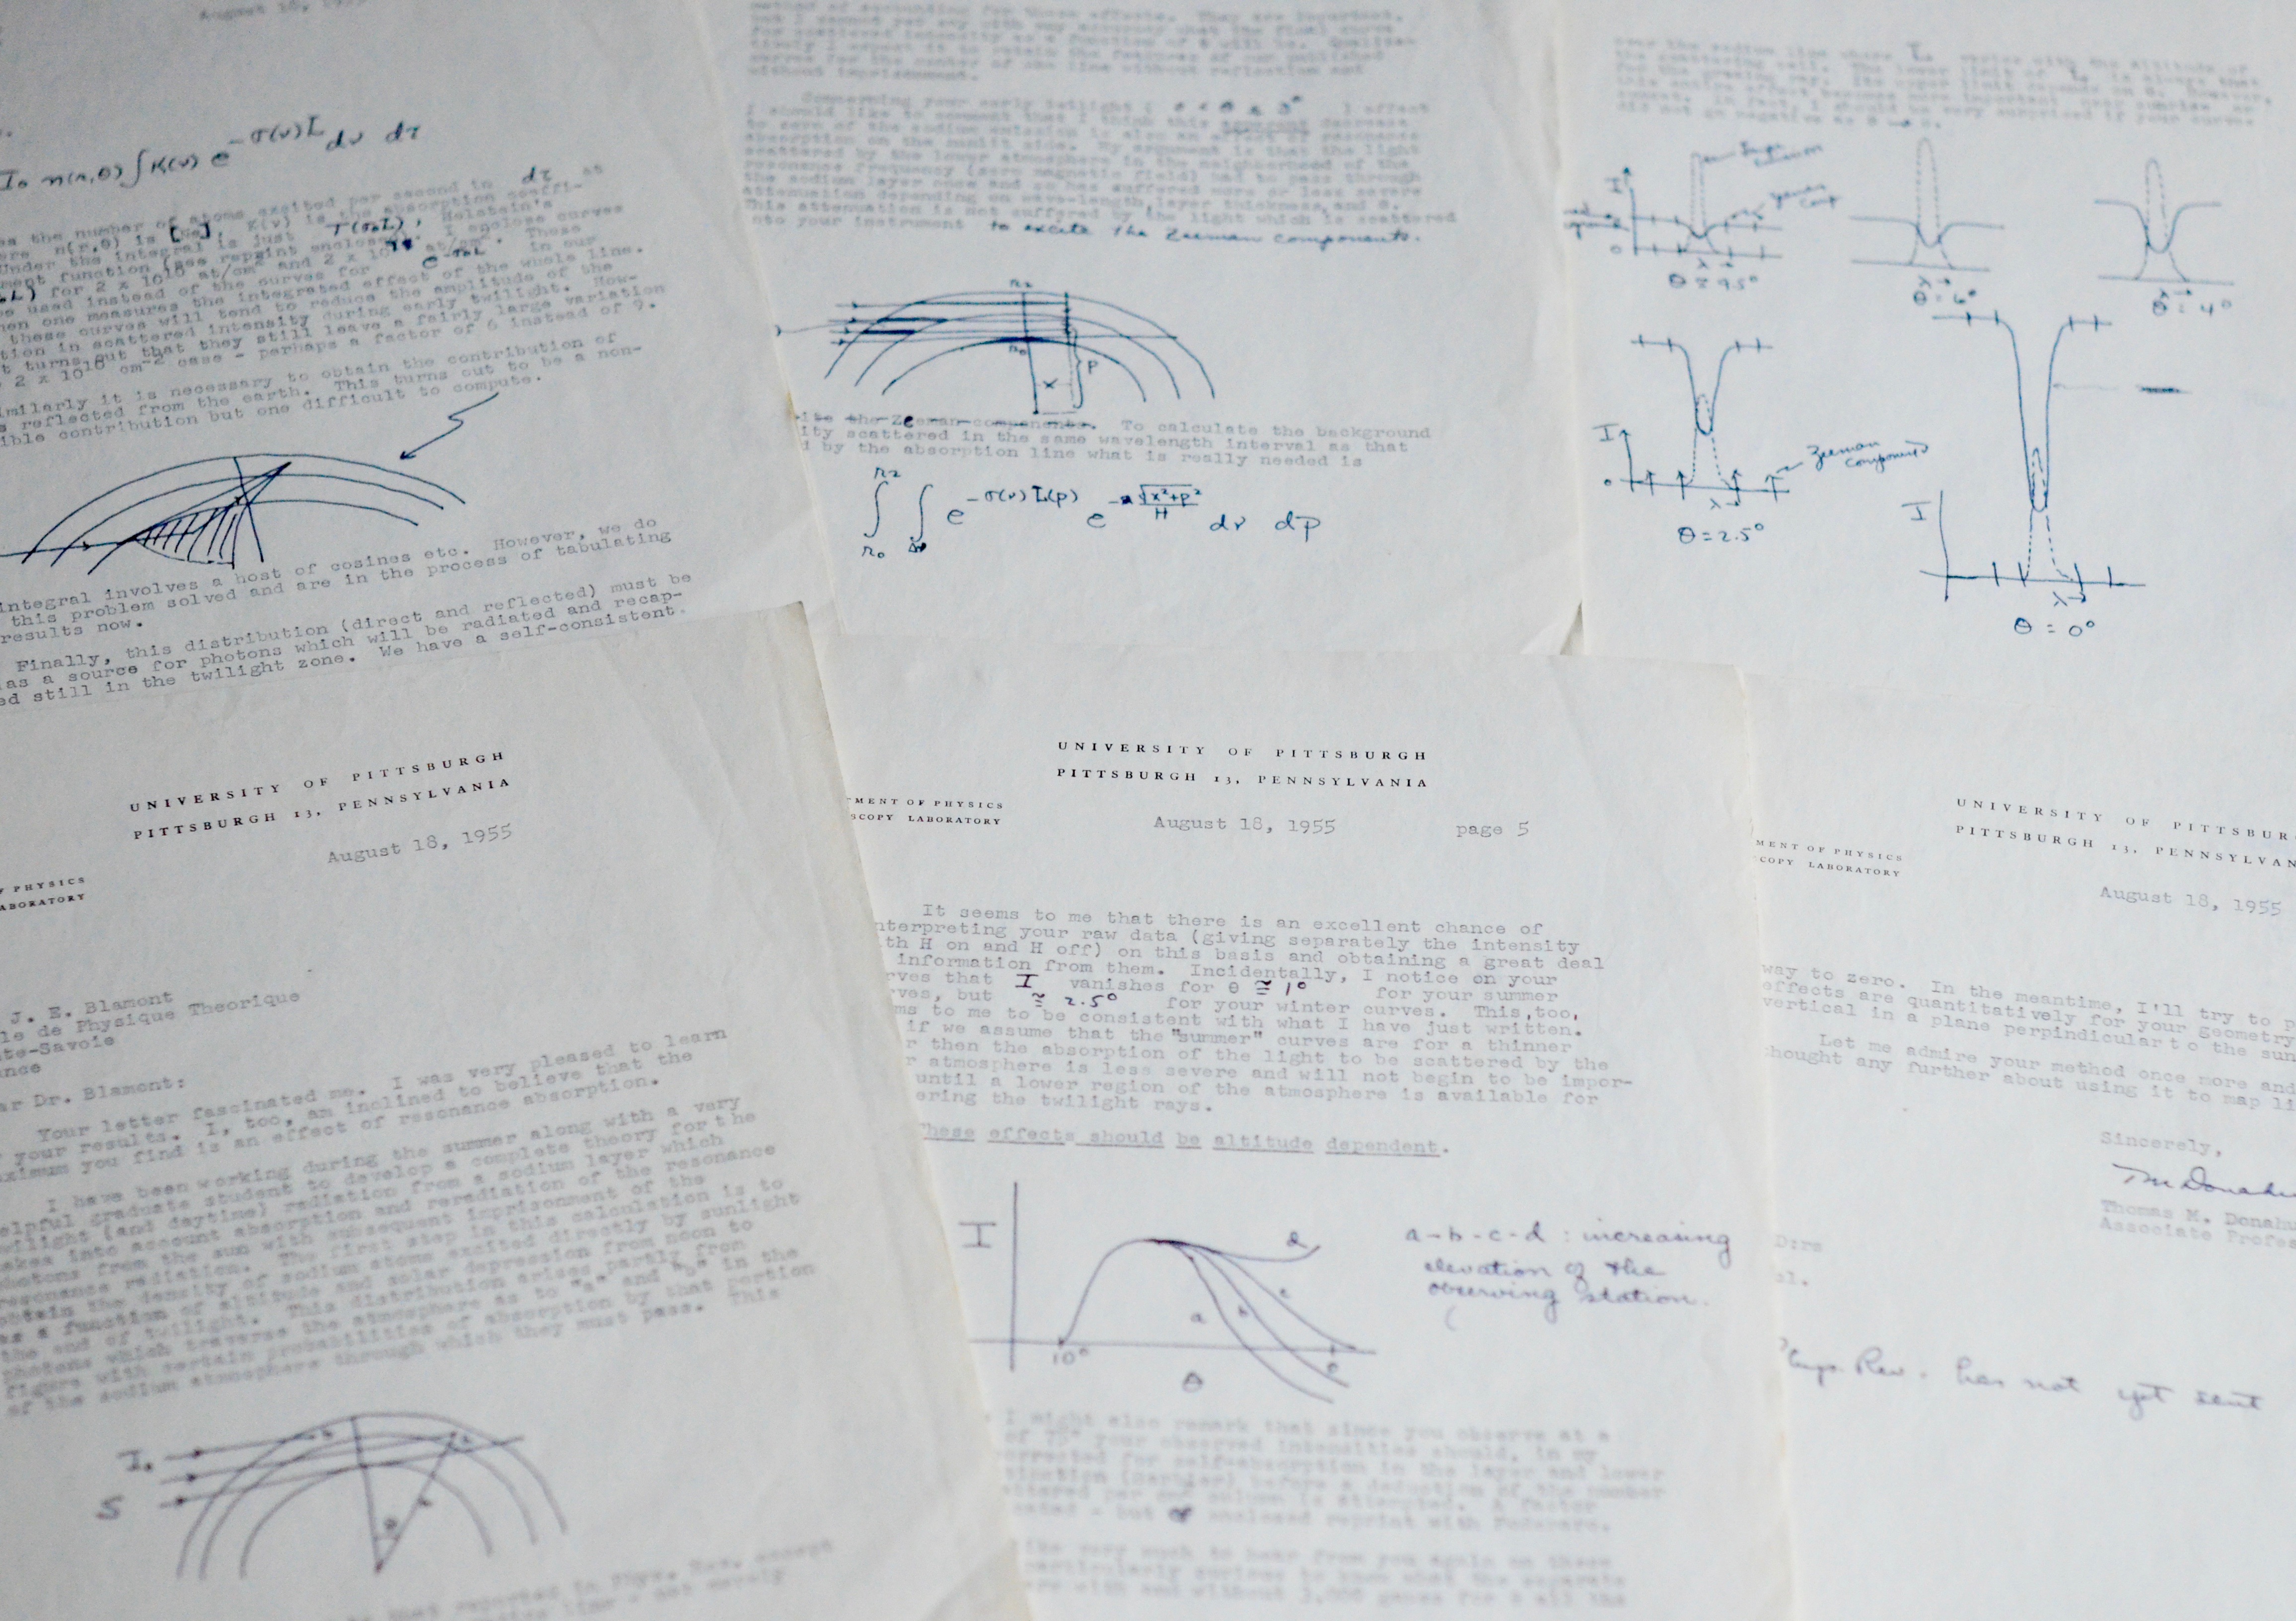 August 18, 1955
I₀ n(r,θ) ∫ K(ν) e^{-σ(ν)L} dν dτ
the number of atoms excited per second in dτ at
n(r,θ) is K(ν) is the absorption coeffi-
Under the integral is just T(σ₀L), Holstein's
ment function (see reprint enclosed). I enclose curves
for 2 x 10¹⁰ at/cm² and 2 x at/cm². These
used instead of the curves for in our
en one measures the integrated effect of the whole line.
these curves will tend to reduce the amplitude of the
tion in scattered intensity during early twilight. How-
t turns out that they still leave a fairly large variation
2 x 10¹⁰ cm⁻² case - perhaps a factor of 6 instead of 9.
milarly it is necessary to obtain the contribution of
s reflected from the earth. This turns out to be a non-
ible contribution but one difficult to compute.
integral involves a host of cosines etc. However, we do
this problem solved and are in the process of tabulating
results now.
Finally, this distribution (direct and reflected) must be
as a source for photons which will be radiated and recap-
ed still in the twilight zone. We have a self-consistent
method of accounting for these effects. They are important,
but I cannot yet say with any accuracy what the final curve
for scattered intensity as a function of θ will be. Qualita-
tively I expect it to retain the features of our published
curves for the center of the line without reflection and
without imprisonment.
Concerning your early twilight ( 0 < θ < 3° ) effect
I should like to comment that I think this apparent decrease
to zero of the sodium emission is also an effect of resonance
absorption on the sunlit side. My argument is that the light
scattered by the lower atmosphere in the neighborhood of the
resonance frequency (zero magnetic field) had to pass through
the sodium layer once and so has suffered more or less severe
attenuation depending on wave-length, layer thickness, and θ.
This attenuation is not suffered by the light which is scattered
nto your instrument to excite the Zeeman components.
r₂
r₀
x
p
ite the Zeeman components. To calculate the background
ity scattered in the same wavelength interval as that
d by the absorption line what is really needed is
∫ ∫ e^{-σ(ν)L(p)} e^{-√(x²+p²)/H} dν dp
r₂
r₀ Δν
near the sodium line where L varies with the altitude of
the scattering cell. The lower limit of L is always that
I
0
Zeeman
λ→
θ ≅ 9.5°
λ→
θ = 6°
λ→
θ = 4°
I
0
λ→
θ = 2.5°
Zeeman
components
I
λ→
θ = 0°
UNIVERSITY OF PITTSBURGH
PITTSBURGH 13, PENNSYLVANIA
F PHYSICS
ABORATORY
August 18, 1955
J. E. Blamont
le de Physique Theorique
te-Savoie
nce
ar Dr. Blamont:
Your letter fascinated me. I was very pleased to learn
your results. I, too, am inclined to believe that the
aximum you find is an effect of resonance absorption.
I have been working during the summer along with a very
elpful graduate student to develop a complete theory for the
wilight (and daytime) radiation from a sodium layer which
akes into account absorption and reradiation of the resonance
photons from the sun with subsequent imprisonment of the
resonance radiation. The first step in this calculation is to
obtain the density of sodium atoms excited directly by sunlight
as a function of altitude and solar depression from noon to
the end of twilight. This distribution arises partly from
photons which traverse the atmosphere as to "a" and "b" in the
figure with certain probabilities of absorption by that portion
of the sodium atmosphere through which they must pass. This
I₀
S
θ
UNIVERSITY OF PITTSBURGH
PITTSBURGH 13, PENNSYLVANIA
TMENT OF PHYSICS
SCOPY LABORATORY
August 18, 1955 page 5
It seems to me that there is an excellent chance of
nterpreting your raw data (giving separately the intensity
th H on and H off) on this basis and obtaining a great deal
information from them. Incidentally, I notice on your
rves that I vanishes for θ ≅ 1° for your summer
rves, but ≅ 2.5° for your winter curves. This, too,
ms to me to be consistent with what I have just written.
if we assume that the "summer" curves are for a thinner
r then the absorption of the light to be scattered by the
r atmosphere is less severe and will not begin to be impor-
until a lower region of the atmosphere is available for
ering the twilight rays.
These effects should be altitude dependent.
I
10°
θ
a
b
c
d
a-b-c-d : increasing
elevation of the
observing station.
I might also remark that since you observe at a
of 75° your observed intensities should, in my
orrected for self-absorption in the layer and lower
UNIVERSITY OF PITTSBUR
PITTSBURGH 13, PENNSYLVAN
MENT OF PHYSICS
COPY LABORATORY
August 18, 1955
way to zero. In the meantime, I'll try to p
effects are quantitatively for your geometry
vertical in a plane perpindicular to the sun
Let me admire your method once more and
hought any further about using it to map li
Sincerely,
Thomas M. Donah
Associate Profes
D:rs
Phys. Rev. has not yet sent